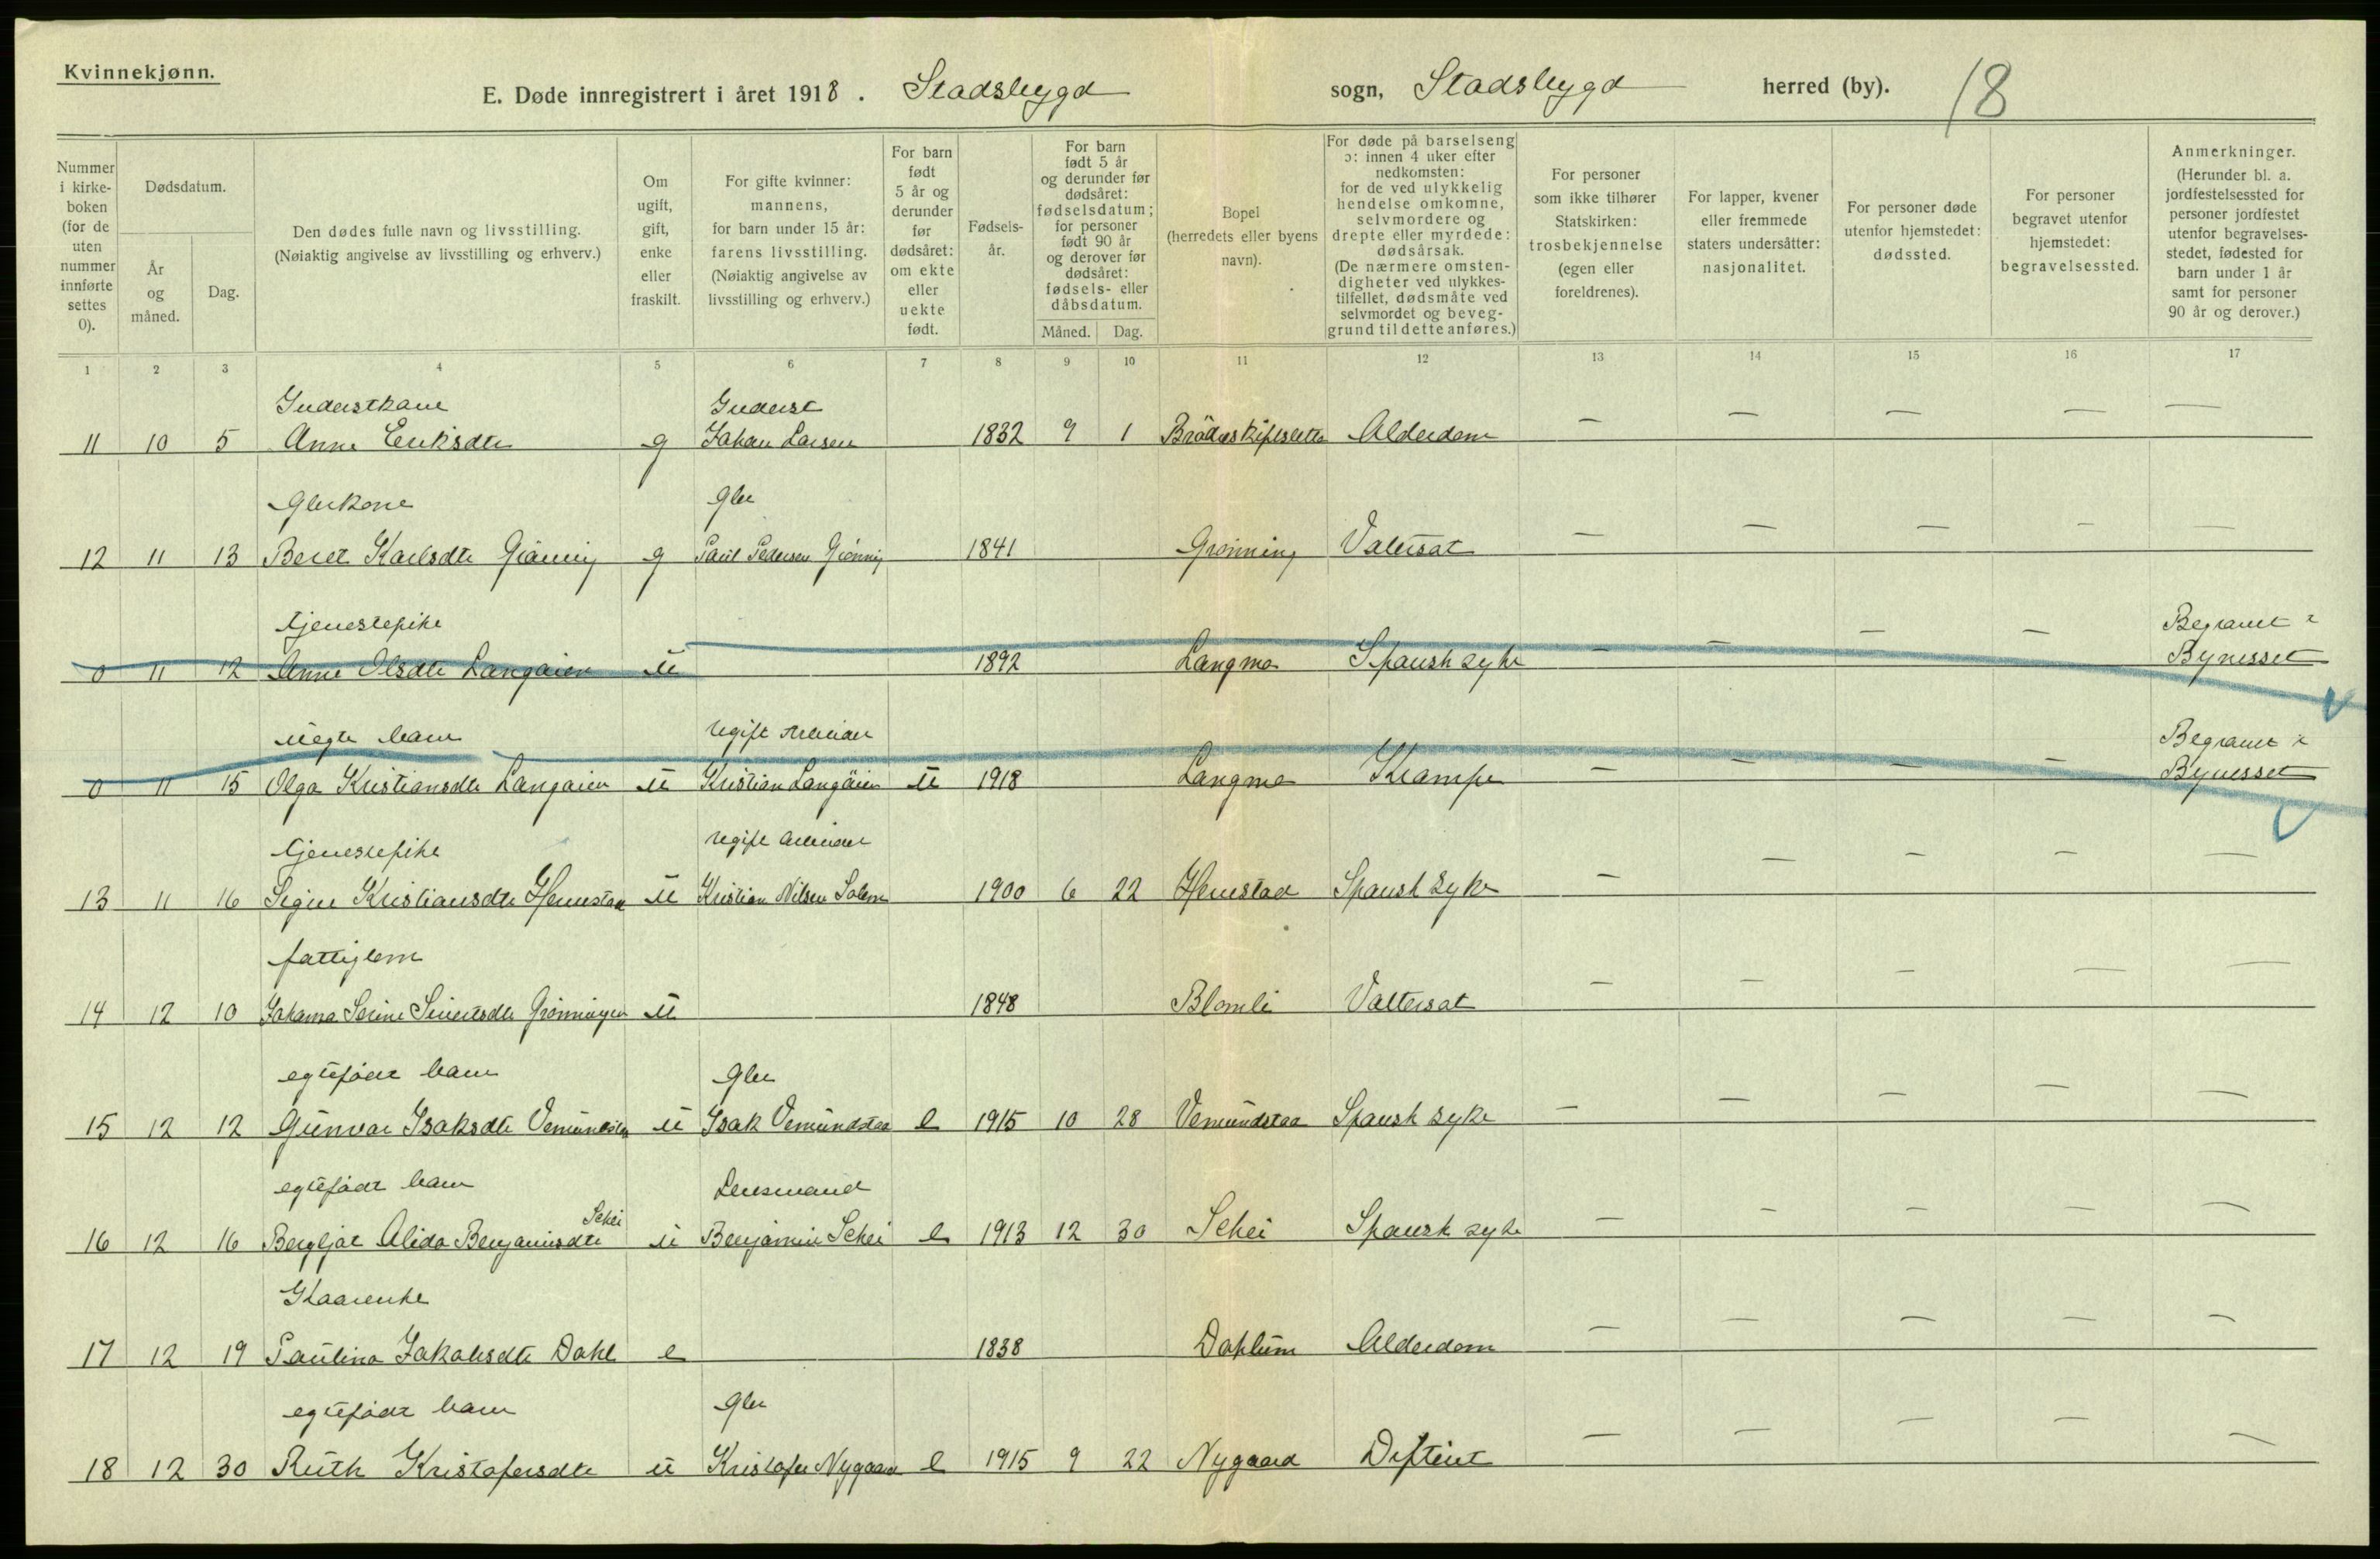 Kvinnekjønn.
E. Døde innregistrert i året 1918. Stadsbygd sogn, Stadsbygd herred (by). 18
Nummer i kirke- boken (for de uten nummer innførte settes 0).
Dødsdatum.
År og måned.
Dag.
Den dødes fulle navn og livsstilling. (Nøiaktig angivelse av livsstilling og erhverv.)
Om ugift, gift, enke eller fraskilt.
For gifte kvinner: mannens, for barn under 15 år: farens livsstilling. (Nøiaktig angivelse av livsstilling og erhverv.)
For barn født 5 år og derunder før dødsåret: om ekte eller uekte født.
Fødsels- år.
For barn født 5 år og derunder før dødsåret: fødselsdatum; for personer født 90 år og derover før dødsåret: fødsels- eller dåbsdatum.
Måned. Dag.
Bopel (herredets eller byens navn).
For døde på barselseng ɔ: innen 4 uker efter nedkomsten: for de ved ulykkelig hendelse omkomne, selvmordere og drepte eller myrdede: dødsårsak. (De nærmere omsten- digheter ved ulykkes- tilfellet, dødsmåte ved selvmordet og beveg- grund til dette anføres.)
For personer som ikke tilhører Statskirken: trosbekjennelse (egen eller foreldrenes).
For lapper, kvener eller fremmede staters undersåtter: nasjonalitet.
For personer døde utenfor hjemstedet: dødssted.
For personer begravet utenfor hjemstedet: begravelsessted.
Anmerkninger. (Herunder bl. a. jordfestelsessted for personer jordfestet utenfor begravelses- stedet, fødested for barn under 1 år samt for personer 90 år og derover.)
1 2 3 4 5 6 7 8 9 10 11 12 13 14 15 16 17
Inderstkone Inderst
11 10 5 Anne Eriksdtr g Johan Larsen 1832 9 1 Alderdom — — — — —
Gbrkone Gbr
12 11 13 Beret Karlsdtr Grønning g Paul Pedersen Grønning 1841 Grønning Vatersot — — — — —
tjenestepike Begravet i
0 11 12 Anne Olsdtr Langaien u 1892 Langmo Spansk syke — — — — Bynesset
uegte barn ugift Arbeider Begravet i
0 11 15 Olga Kristiansdtr Langaien u Kristian Langaien u 1918 Langmo Krampe — — — — Bynesset
tjenestepike ugift arbeider
13 11 16 Signe Kristiansdtr Hemstad u Kristian Nilsen Solem 1900 6 22 Hemstad Spansk syke — — — — —
fattiglem
14 12 10 Johanna Serine Sivertsdtr Grønningen u 1848 Blomli Vattersot — — — — —
egtefødt barn Gbr
15 12 12 Gunvor Isaksdtr u Isak Vemundstad e 1915 10 28 Vemundstad Spansk syke — — — — —
egtefødt barn Lensmand
Schei
16 12 16 Bergljot Alida Benjaminsdtr u Benjamin Schei e 1913 12 30 Schei Spansk syke — — — — —
Kaarenke
17 12 19 Paulina Jakobsdtr Dahl e 1838 Dahlum Alderdom — — — — —
egtefødt barn Gbr
18 12 30 Ruth Kristofersdtr u Kristofer Nygaard e 1915 9 22 Nygaard Difterit — — — — —